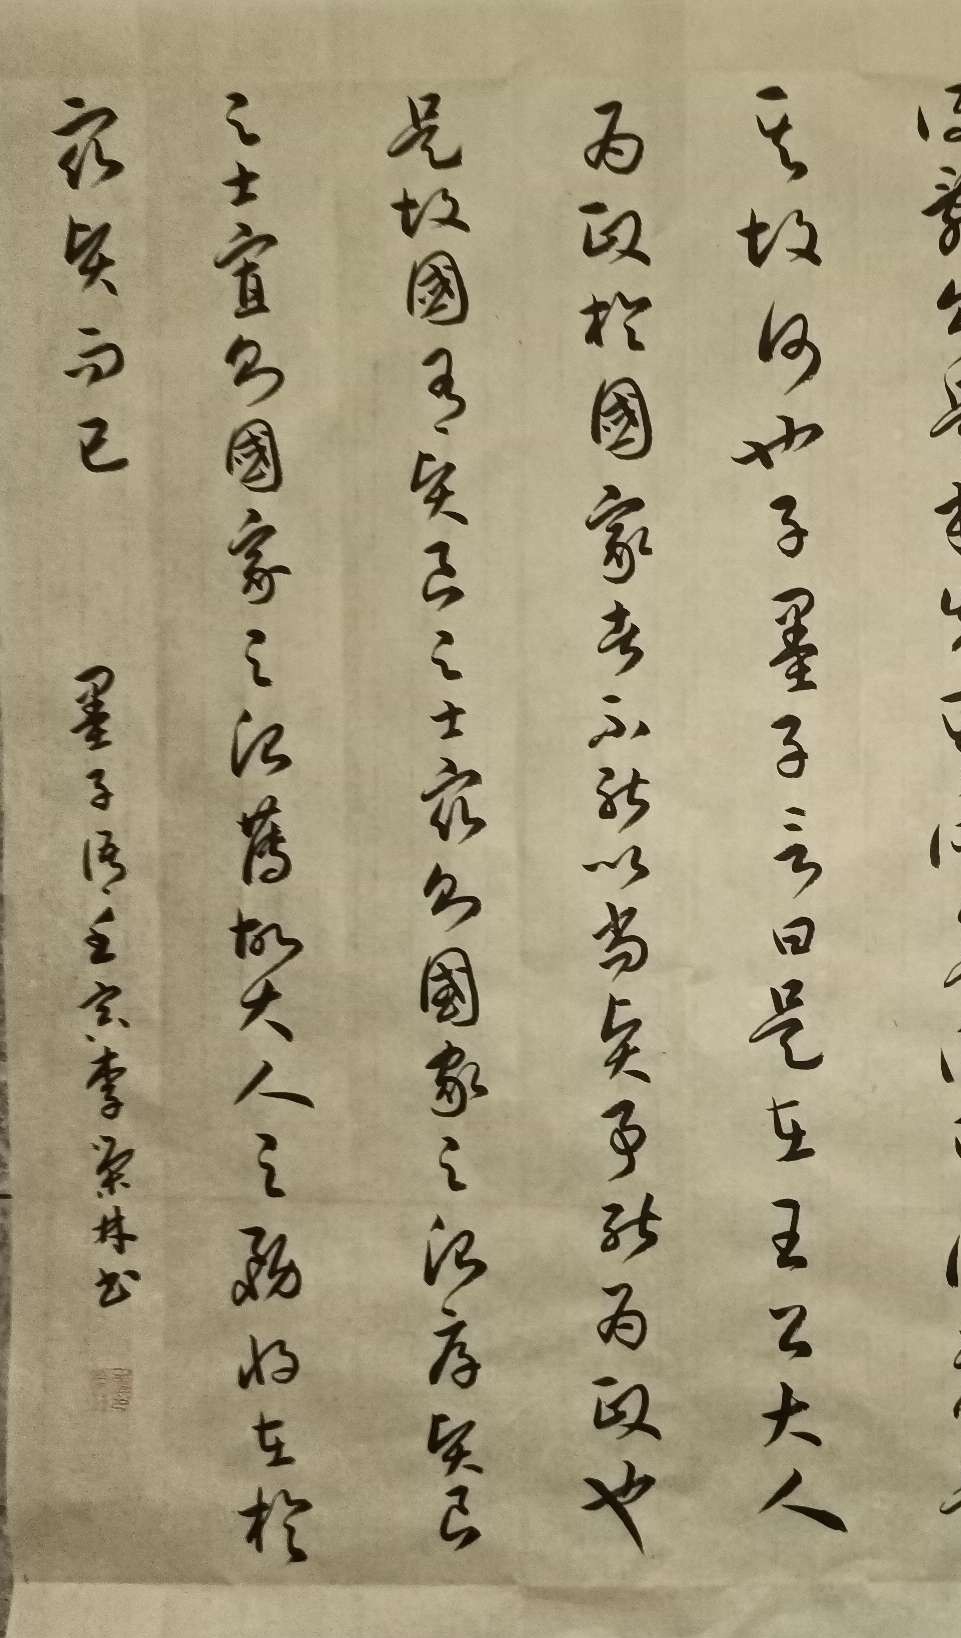 得亂則是本失
其故何也子墨子言曰是在王公大人
為政於國家者不能以尚賢事能為政也
是故國有賢良之士眾則國家之治厚賢良
之士寡則國家之治薄故大人之務將在於
眾賢而已 墨子語 壬寅李榮林書